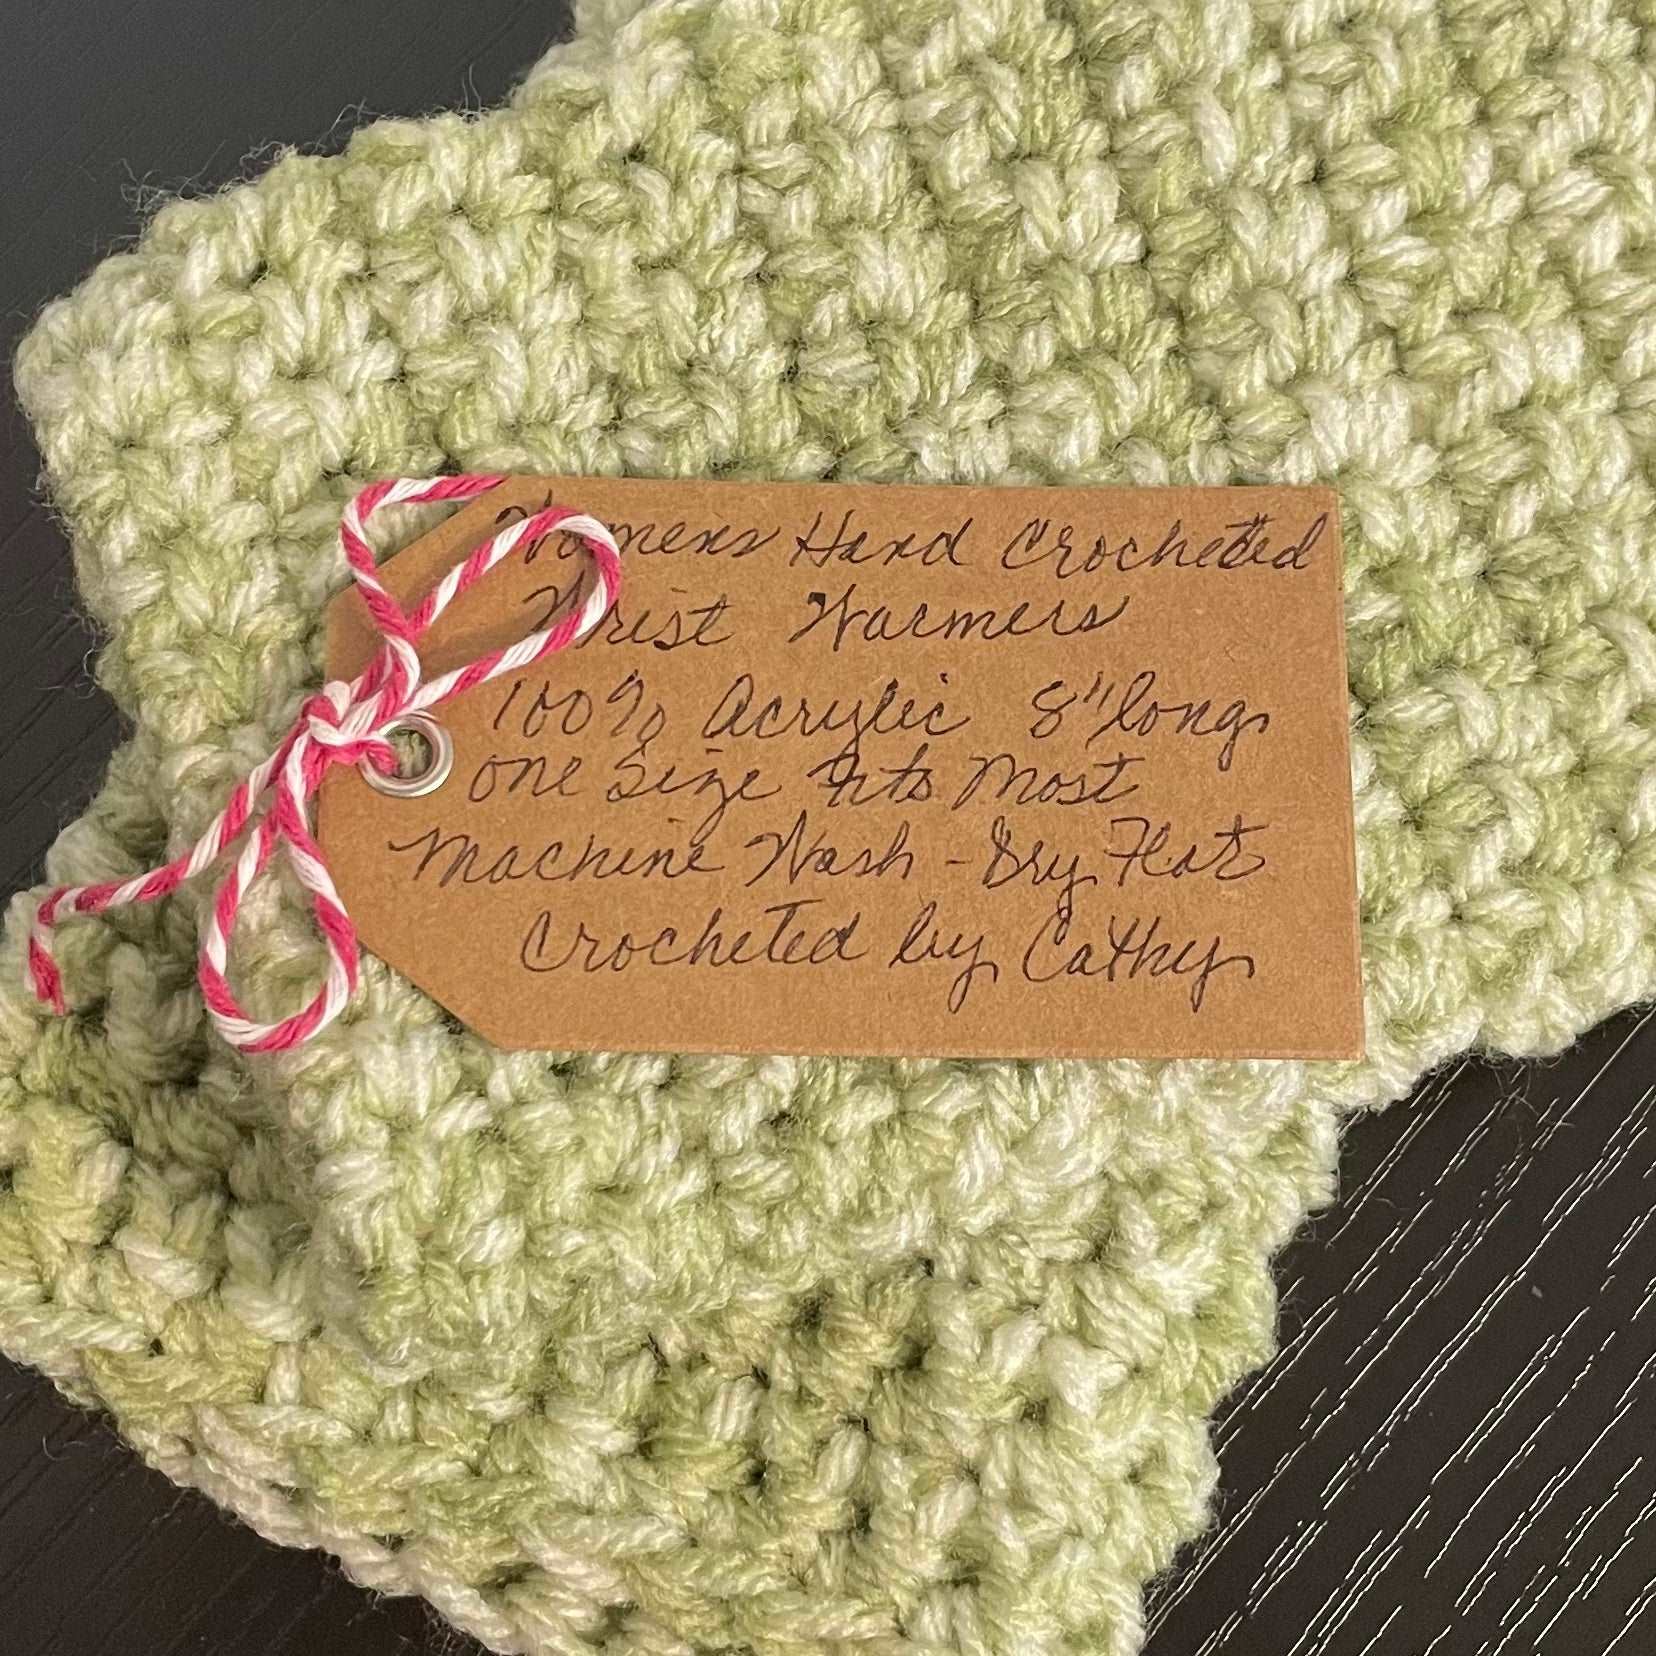 Womens Hand Crocheted
Wrist Warmers
100% Acrylic 8" long
one size fits Most
Machine Wash - Dry Flat
Crocheted by Cathy